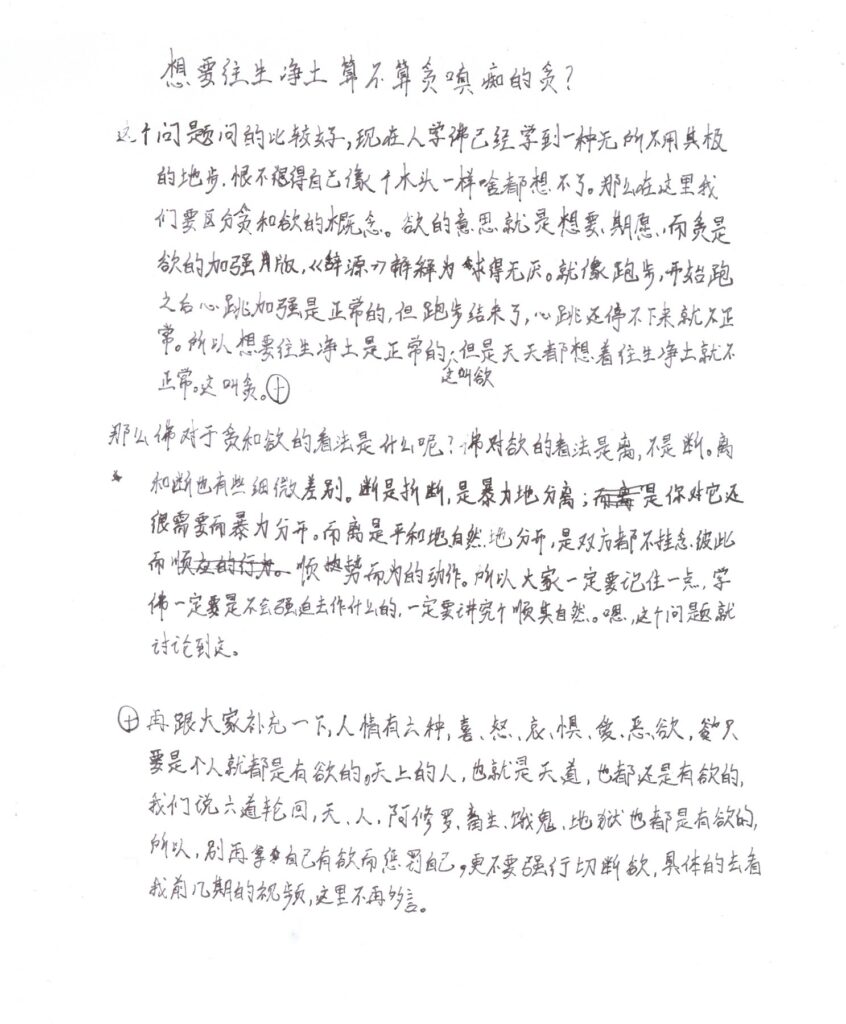 想要往生净土算不算贪嗔痴的贪?
这个问题问的比较好,现在人学佛已经学到一种无所不用其极
的地步.恨不得自己像个木头一样啥都想不了。那么在这里我
们要区分贪和欲的概念。欲的意思就是想要、期愿、而贪是
欲的加强版,《辞源》解为求得无厌。就像跑步,开始跑
之后心跳加强是正常的,但跑步结束了,心跳还停不下来就不正
常。所以想要往生净土是正常的,但是天天都想着往生净土就不
这叫欲
正常。这叫贪。⊕
那么佛对于贪和欲的看法是什么呢?佛对欲的看法是离,不是断。离
和断也有些细微差别。断是折断,是暴力地分离;是你对它还
很需要而暴力分开。而离是平和地自然地分开,是双方都不挂念彼此
而顺应的行为。顺势而为的动作。所以大家一定要记住一点,学
佛一定是不会强迫去作什么的,一定要讲究个顺其自然。嗯,这个问题就
讨论到这。
⊕再跟大家补充一下,人情有六种,喜、怒、哀、惧、爱、恶、欲,只
要是个人就都是有欲的。天上的人,也就是天道,也都还是有欲的,
我们说六道轮回,天、人、阿修罗、畜生、饿鬼、地狱也都是有欲的,
所以,别再拿自己有欲而惩罚自己,更不要强行切断欲,具体的去看
我前几期的视频,这里不再多言。